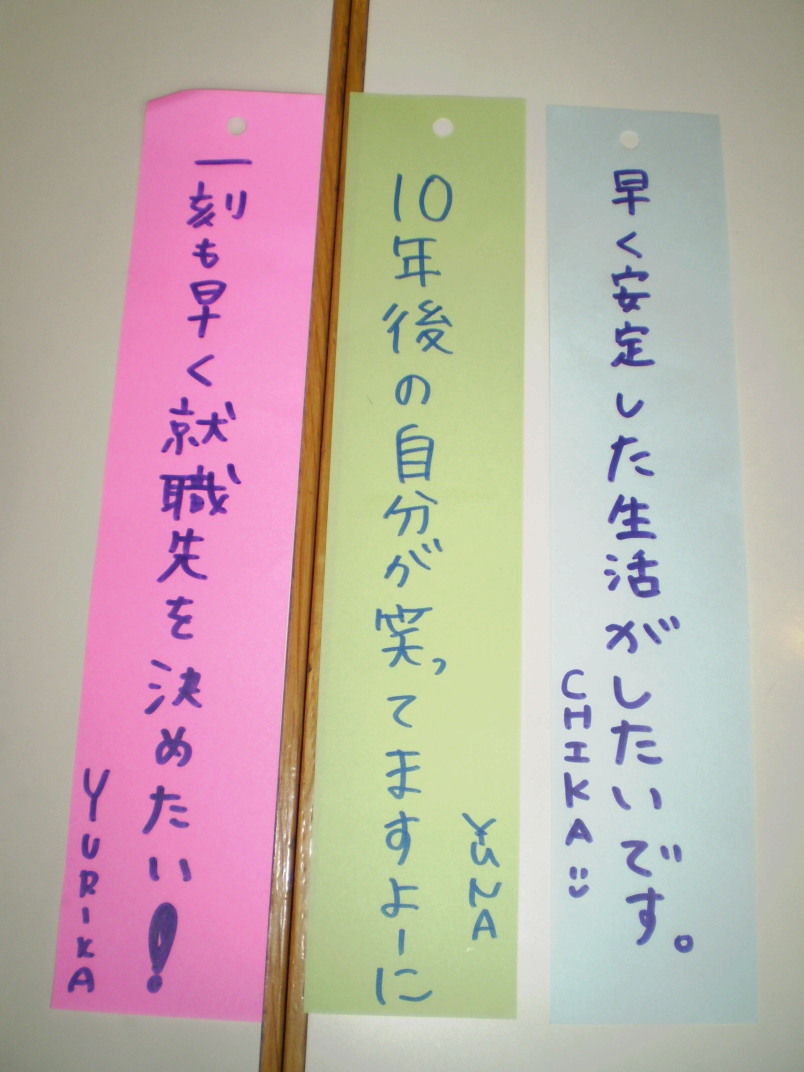 早く安定した生活がしたいです。
CHIKA
10年後の自分が笑ってますよーに
YUNA
一刻も早く就職先を決めたい!
YURIKA